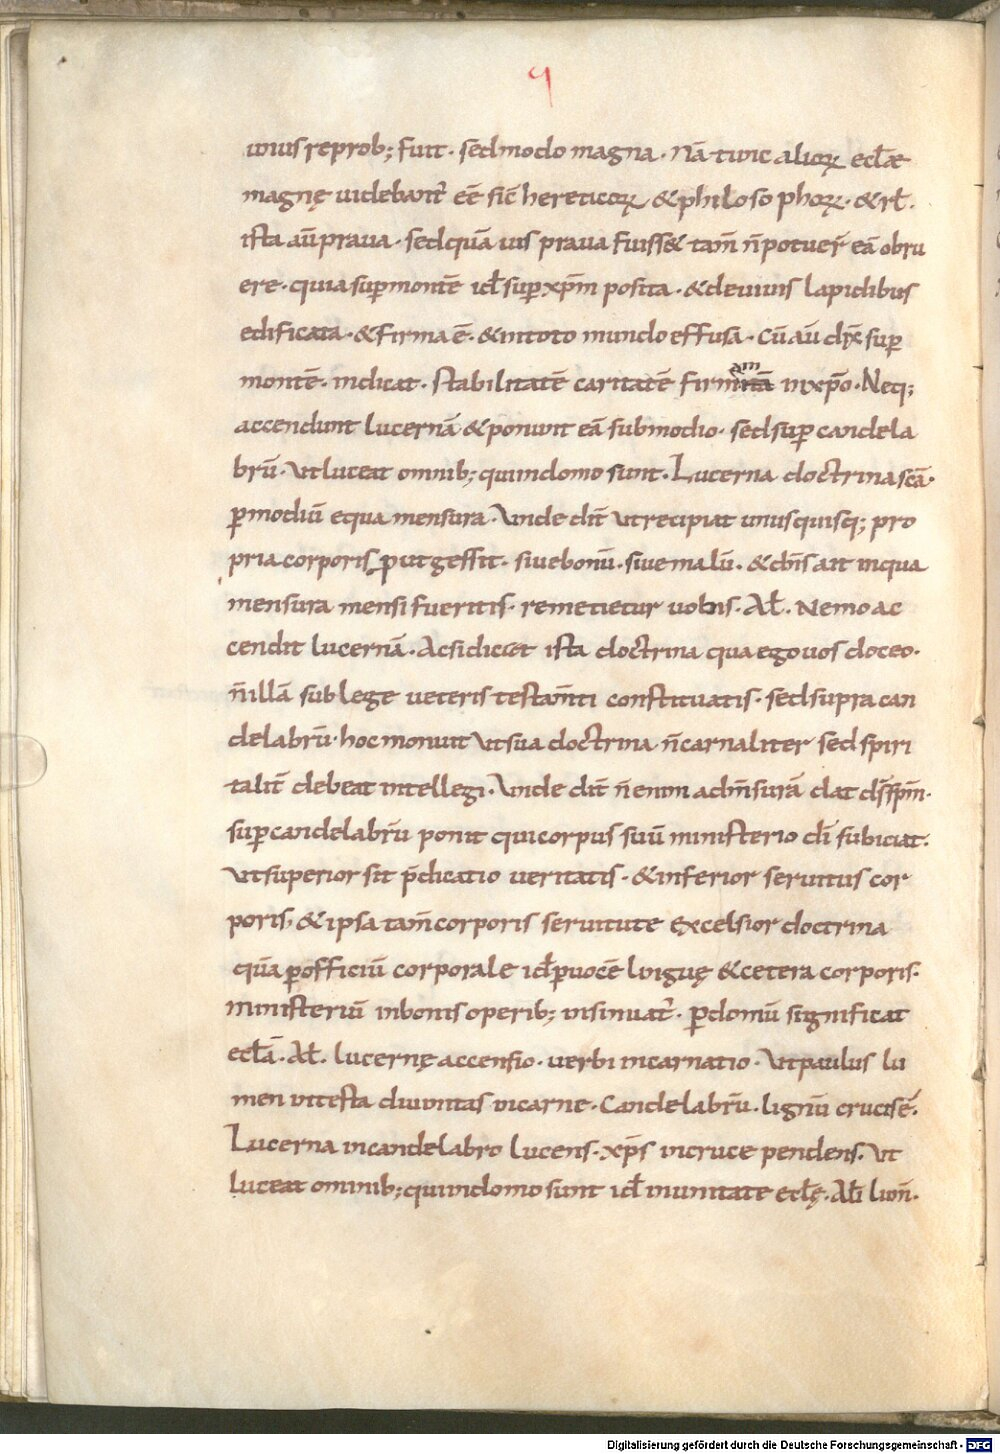 9
uius reprob; fuit. sed modo magna. nā tunc alioꝝ eclæ
magnę uidebant᷑ eē sic̄ hereticoꝝ & philosophoꝝ. & rł.
ista aū praua. sed quā uis praua fuiss& tam̄ n̄ potuer̄ eā obru
ere. quia sup montē id ē sup xp̄m posita. & de uiuis lapidibus
edificata. & firma ē. & in toto mundo effusa. Cū aū dix̄ sup
montē. indicat. stabilitatē caritatē firmam in xp̄o. Neq;
accendunt lucernā & ponunt eā sub modio. sed sup candela
brū. Ut luceat omnib; qui in domo sunt. Lucerna doctrina sc̄a.
ꝑ modiū equa mensura. Unde dic̄ ut recipiat unusquisq; pro
pria corporis put gessit. siue bonū. siue malū. & dn̄s ait in qua
mensura mensi fueritis. remetietur uobis. Al̄. Nemo ac
cendit lucernā. Ac si dicat ista doctrina qua ego uos doceo.
n̄ illā sub lege ueteris testam̄ti constituatis. sed supra can
delabrū. hoc monuit ut sua doctrina n̄ carnaliter sed spiri
talit̄ debeat intellegi. Unde dic̄ n̄ enim ad m̄surā dat ds̄ sp̄m.
sup candelabrū ponit qui corpus suū ministerio dī subiciat.
Ut superior sit p̄dicatio ueritatis. & inferior seruitus cor
poris, & ipsa tam̄ corporis seruitute excelsior doctrina
quā ꝑ officiū corporale id ē ꝑ uocē linguę & cetera corporis.
ministeriū in bonis operib; insinuat᷑. ꝑ domū significat
eclā. Al̄. lucernę accensio. uerbi incarnatio. Ut paulus lu
men uite sta diuinitas in carne. Candelabrū. lignū crucis ē.
Lucerna in candelabro lucens. xp̄s in cruce pendens. Ut
luceat omnib; qui in domo sunt id ē in unitate eclę. Al̄
Digitalisierung gefördert durch die Deutsche Forschungsgemeinschaft - DFG